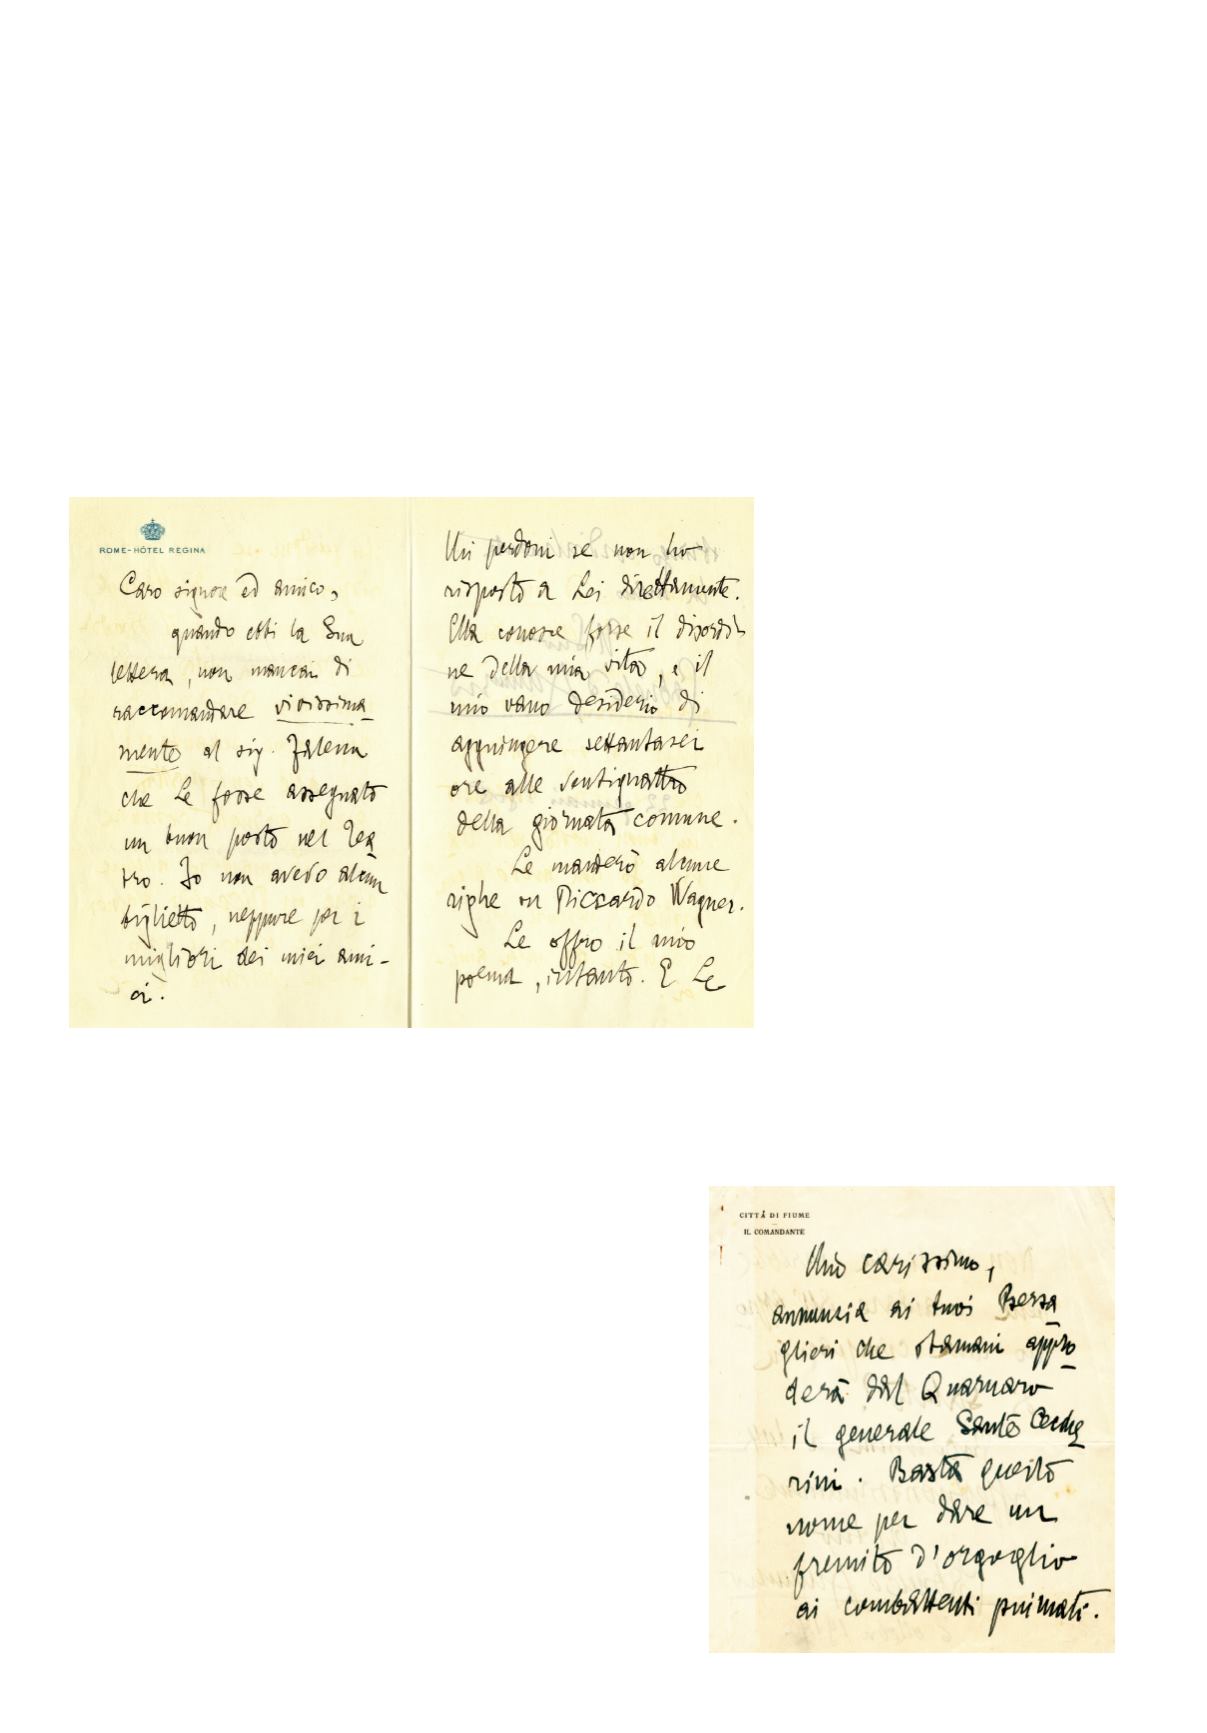 ROME-HÔTEL REGINA
Caro signore ed amico,
quando ebbi la Sua
lettera, non mancai di
raccomandare vivissima
mente al sig.
che Le fosse assegnato
un buon posto nel Tea
tro. Io non avevo alcun
biglietto, neppure per i
migliori dei miei ami-
ci.
Mi perdoni se non ho
risposto a Lei direttamente.
Ella conosce forse il disordi
ne della mia vita, e il
mio vano desiderio di
aggiungere settantasei
ore alle ventiquattro
della giornata comune.
Le manderò alcune
righe su Riccardo Wagner.
Le offro il mio
poema, intanto. E Le
CITTÀ DI FIUME
IL COMANDANTE
Mio carissimo,
annunzia ai tuoi Bersa
glieri che stamani appro
derà dal Quarnaro
il generale Santo Ceche
rini. Basta questo
nome per dare un
fremito d'orgoglio
ai combattenti piumati.